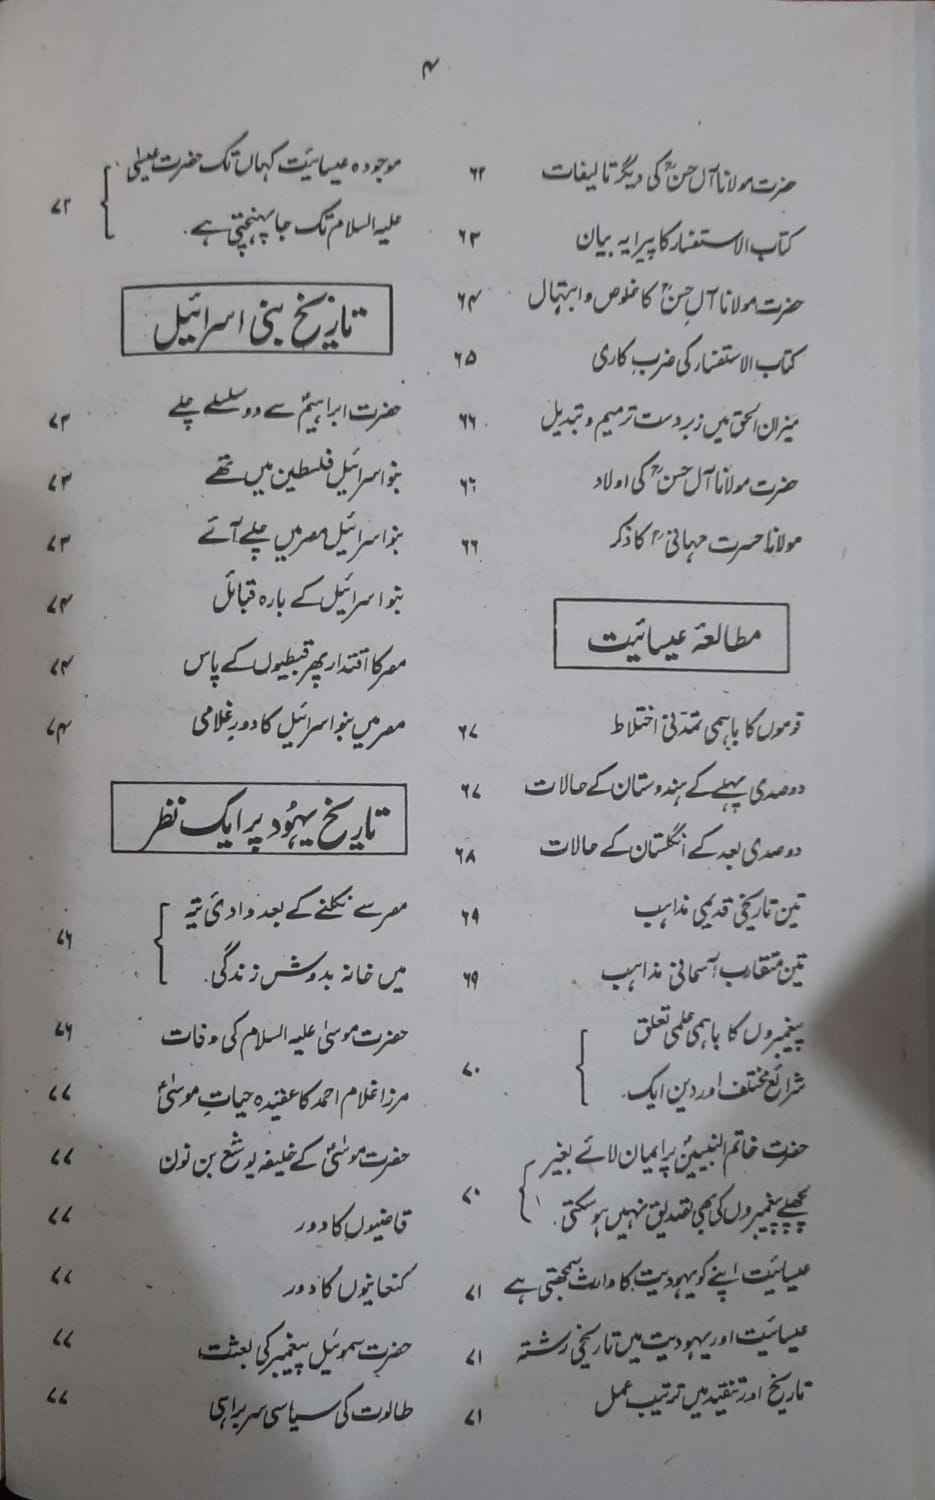 ۴
حضرت مولانا آل حسنؒ کی دیگر تالیفات ۶۲
کتاب الاستفسار کا پیرایہ بیان ۶۳
حضرت مولانا آلِ حسنؒ کا خلوص و ابتہال ۶۴
کتاب الاستفسار کی ضرب کاری ۶۵
میزان الحق میں زبردست ترمیم و تبدیل ۶۶
حضرت مولانا آل حسنؒ کی اولاد ۶۶
مولانا حسرت موہانیؒ کا ذکر ۶۶
مطالعۂ عیسائیت
قوموں کا باہمی تمدّنی اختلاط ۶۷
دو صدی پہلے کے ہندوستان کے حالات ۶۷
دو صدی بعد کے انگلستان کے حالات ۶۸
تین تاریخی قدیمی مذاہب ۶۹
تین متقارب آسمانی مذاہب ۶۹
پیغمبروں کا باہمی علمی تعلق
شرائع مختلف اور دین ایک۔ ۷۰
حضرت خاتم النبیینؐ پر ایمان لائے بغیر
پچھلے پیغمبروں کی بھی تصدیق نہیں ہو سکتی۔ ۷۰
عیسائیت اپنے کو یہودیت کا وارث سمجھتی ہے ۷۱
عیسائیت اور یہودیت میں تاریخی رشتہ ۷۱
تاریخ اور تنقید میں ترتیب عمل ۷۱
موجودہ عیسائیت کہاں تک حضرت عیسٰی
علیہ السلام تک جا پہنچتی ہے۔ ۷۲
تاریخ بنی اسرائیل
حضرت ابراہیمؑ سے دو سلسلے چلے ۷۳
بنو اسرائیل فلسطین میں تھے ۷۳
بنو اسرائیل مصر میں چلے آئے ۷۳
بنو اسرائیل کے بارہ قبائل ۷۴
مصر کا اقتدار پھر قبطیوں کے پاس ۷۴
مصر میں بنو اسرائیل کا دورِ غلامی ۷۴
تاریخ یہُود پر ایک نظر
مصر سے نکلنے کے بعد وادیٔ تیہ
میں خانہ بدوش زندگی۔ ۷۶
حضرت موسٰی علیہ السلام کی وفات ۷۶
مرزا غلام احمد کا عقیدہ حیاتِ موسٰیؑ ۷۷
حضرت موسٰیؑ کے خلیفہ یوشع بن نون ۷۷
قاضیوں کا دور ۷۷
کنعانیوں کا دور ۷۷
حضرت سموئیل پیغمبر کی بعثت ۷۷
طالوت کی سیاسی سربراہی ۷۷